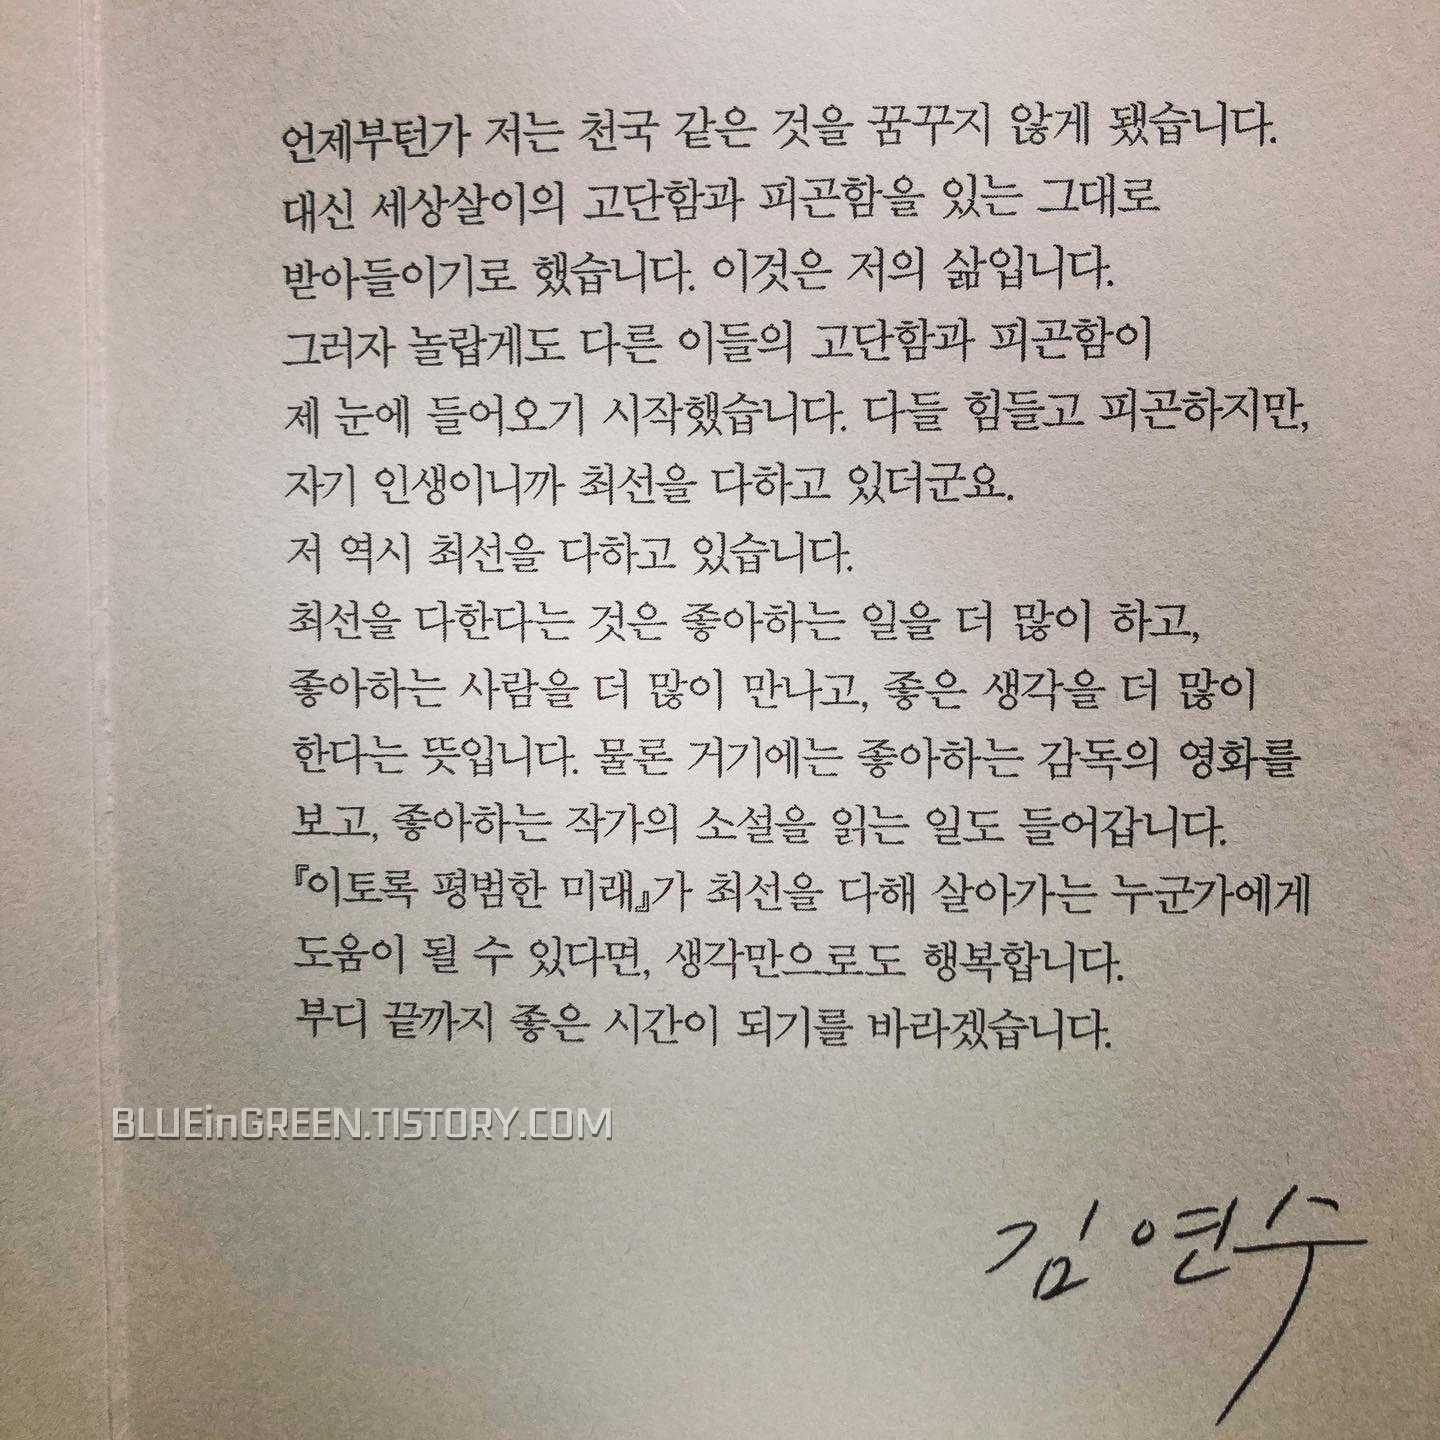 언제부턴가 저는 천국 같은 것을 꿈꾸지 않게 됐습니다.
대신 세상살이의 고단함과 피곤함을 있는 그대로
받아들이기로 했습니다. 이것은 저의 삶입니다.
그러자 놀랍게도 다른 이들의 고단함과 피곤함이
제 눈에 들어오기 시작했습니다. 다들 힘들고 피곤하지만,
자기 인생이니까 최선을 다하고 있더군요.
저 역시 최선을 다하고 있습니다.
최선을 다한다는 것은 좋아하는 일을 더 많이 하고,
좋아하는 사람을 더 많이 만나고, 좋은 생각을 더 많이
한다는 뜻입니다. 물론 거기에는 좋아하는 감독의 영화를
보고, 좋아하는 작가의 소설을 읽는 일도 들어갑니다.
『이토록 평범한 미래』가 최선을 다해 살아가는 누군가에게
도움이 될 수 있다면, 생각만으로도 행복합니다.
부디 끝까지 좋은 시간이 되기를 바라겠습니다.
BLUEinGREEN.TISTORY.COM
김연수